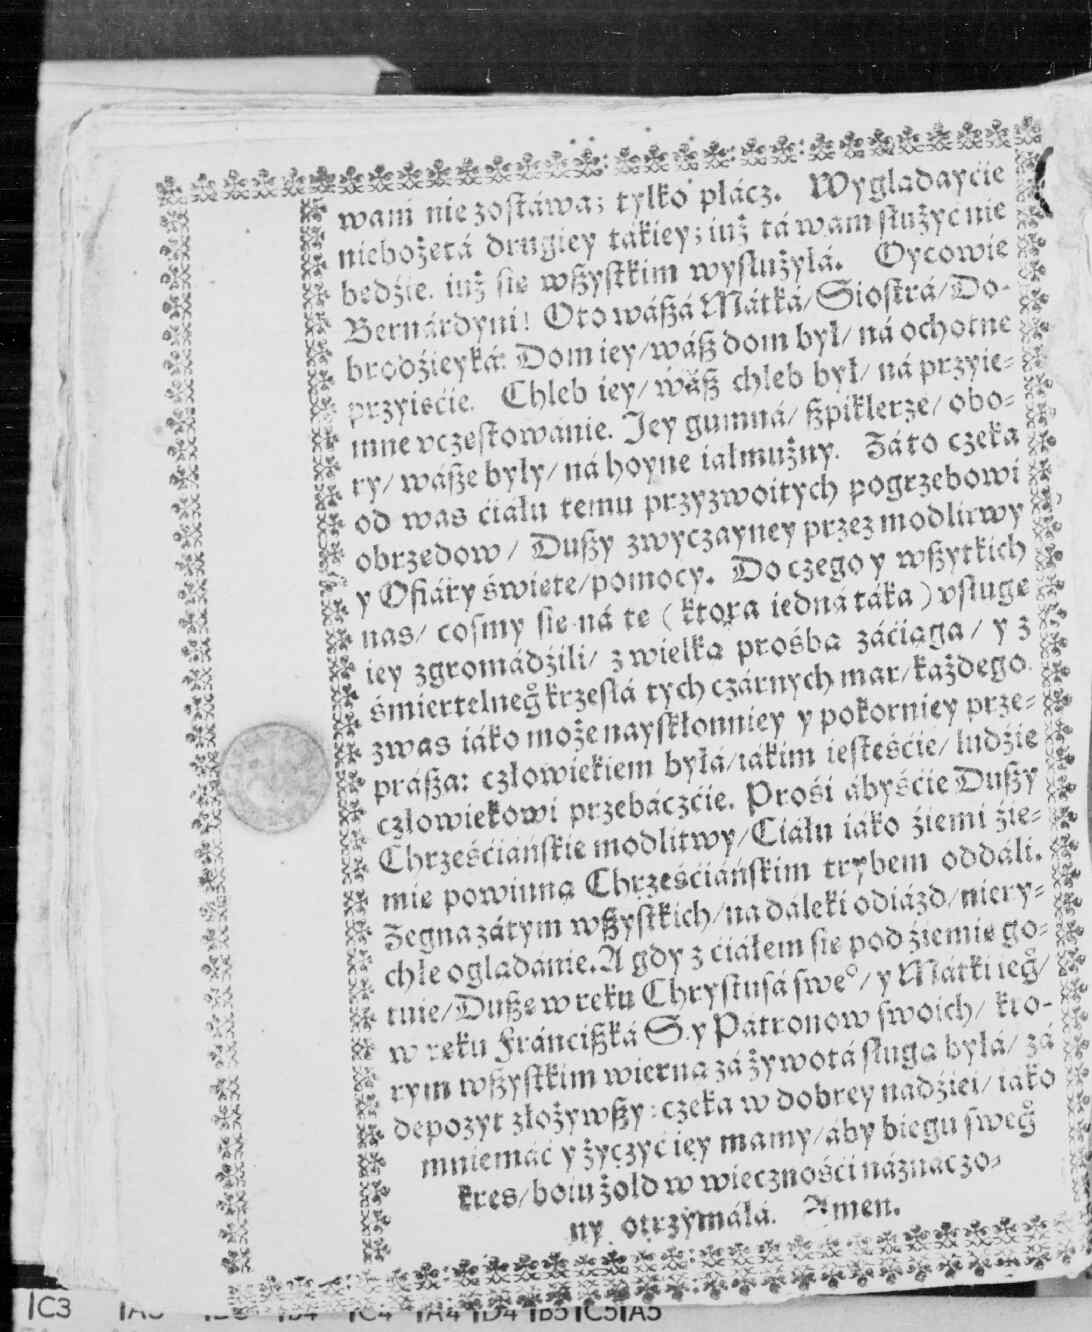 wam nie zostáwa; tylko plácz. Wygladayćie
niebożetá drugiey tákiey; iuż tá wam służyc nie
będźie. iuż się wßystkim wysłużyłá. Oycowie
Bernárdyni! Oto wáßá Mátká/ Siostrá/ Do-
brodźieyká: Dom iey/ wáß dom był/ ná ochotne
przyiśćie. Chleb iey/ wáß chleb był/ ná przyie-
mne vczęstowánie. Jey gumná/ ßpiklerze/ obo-
ry/ wáße były/ ná hoyne iałmużny. Zá to czeka
od was ćiału temu przyzwoitych pogrzebowi
obrzędow/ Dußy zwyczayney przez modlitwy
y Ofiáry święte/ pomocy. Do czego y wßytkich
nas/ cosmy się ná tę (ktora iedná táka) vsługę
iey zgromádźili/ z wielka prośba záćiąga/ y z
śmiertelneg̊ krzesłá tych czárnych mar/ każdego
zwas iáko może nayskłonniey y pokorniey prze-
práßa: człowiekiem byłá/ iákim iesteśćie/ ludźie
człowiekowi przebáczćie. Prośi ábyśćie Dußy
Chrześćiáńskie modlitwy/ Ciáłu iáko źiemi źie-
mię powinną Chrześćiáńskim trybem oddáli.
Zegna zátym wßystkich/ na dáleki odiázd/ niery-
chłe oglądánie. A gdy z ćiáłem się pod źiemię go-
tuie/ Dußę w ręku Chrystusá sweᵒ/ y Mátki ieg̊/
w ręku Fránćißká S. y Pátronow swoich/ kto-
rym wßystkim wierną zá żywotá sługą byłá/ zá
depozyt złożywßy: czeka w dobrey nádźiei/ iáko
mniemáć y życzyć iey mamy/ áby biegu sweg̊
kres/ boiu żołd w wiecznośći náznáczo-
ny otrzymáłá. Amen.
C3 A3 C4 A4 D4 B5 C5 A5